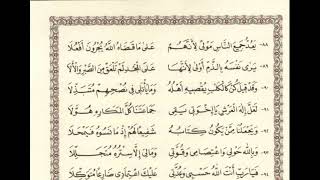 ٨٨- يَعُدُّ جَمِيعَ النَّاسِ مَوْلًى لِأَنَّهُمْ عَلَى مَا قَضَاهُ اللَّهُ يُجْرُونَ أَفْعُلَا
٨٩- يَرَى نَفْسَهُ بِالذَّمِّ أَوْلَى لِأَنَّهَا عَلَى الْمَجْدِ لَمْ تَلْعَقْ مِنَ الصَّبْرِ وَالْأَلَا
٩٠- وَقَدْ قِيلَ كُنْ كَالْكَلْبِ يُقْصِيهِ أَهْلُهُ وَمَا يَأْتَلِي فِي نُصْحِهِمْ مُتَبَذِّلَا
٩١- لَعَلَّ إِلَهَ الْعَرْشِ يَا إِخْوَتِي يَقِي جَمَاعَتَنَا كُلَّ الْمَكَارِهِ هُوَّلَا
٩٢- وَيَجْعَلُنَا مِمَّنْ يَكُونُ كِتَابُهُ شَفِيعًا لَهُمْ إِذْ مَا نَسُوهُ فَيَمْحَلَا
٩٣- وَبِاللَّهِ حَوْلِي وَاعْتِصَامِي وَقُوَّتِي وَمَالِيَ إِلَّا سِتْرُهُ مُتَجَلِّلَا
٩٤- فَيَا رَبِّ أَنْتَ اللَّهُ حَسْبِي وَعُدَّتِي عَلَيْكَ اعْتِمَادِي ضَارِعًا مُتَوَكِّلَا